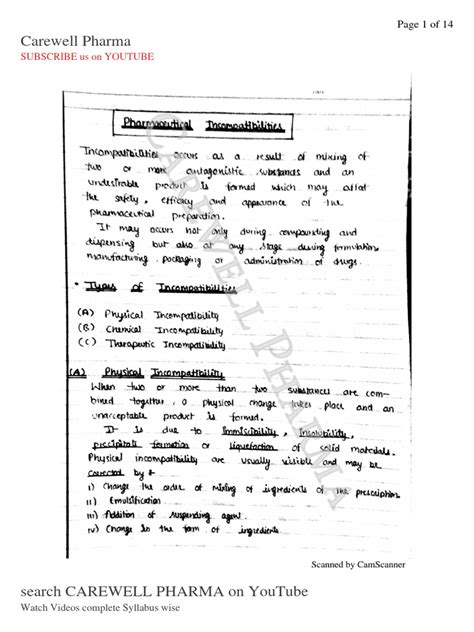 Page 1 of 14
Carewell Pharma
SUBSCRIBE us on YOUTUBE
DATE
Pharmaceutical Incompatibilities
Incompatibilities occurs as a result of mixing of
two or more antagonistic substances and an
undesirable product is formed which may affat
the safety, efficacy and appearance of the
pharmaceutical preparation.
It may occurs not only during compounding and
dispensing but also at any stage during formulation
manufacturing, packaging or administration of drugs.
• Types of Incompatibilities
(A) Physical Incompatibility
(B) Chemical Incompatibility
(C) Therapeutic Incompatibility
(A) Physical Incompatibility
When two or more than two substances are com-
bined together, a physical change takes place and an
unacceptable product is formed.
It is due to Immiscibility, Insolubility,
precipitate formation or liquefaction of solid materials.
Physical incompatibility are usually visible and may be
corrected by :-
i) Change the order of mixing of ingredients of the prescription
ii) Emulsification
iii) Addition of suspending agent.
iv) Change in the form of ingredients.
CAREWELL PHARMA
Scanned by CamScanner
search CAREWELL PHARMA on YouTube
Watch Videos complete Syllabus wise